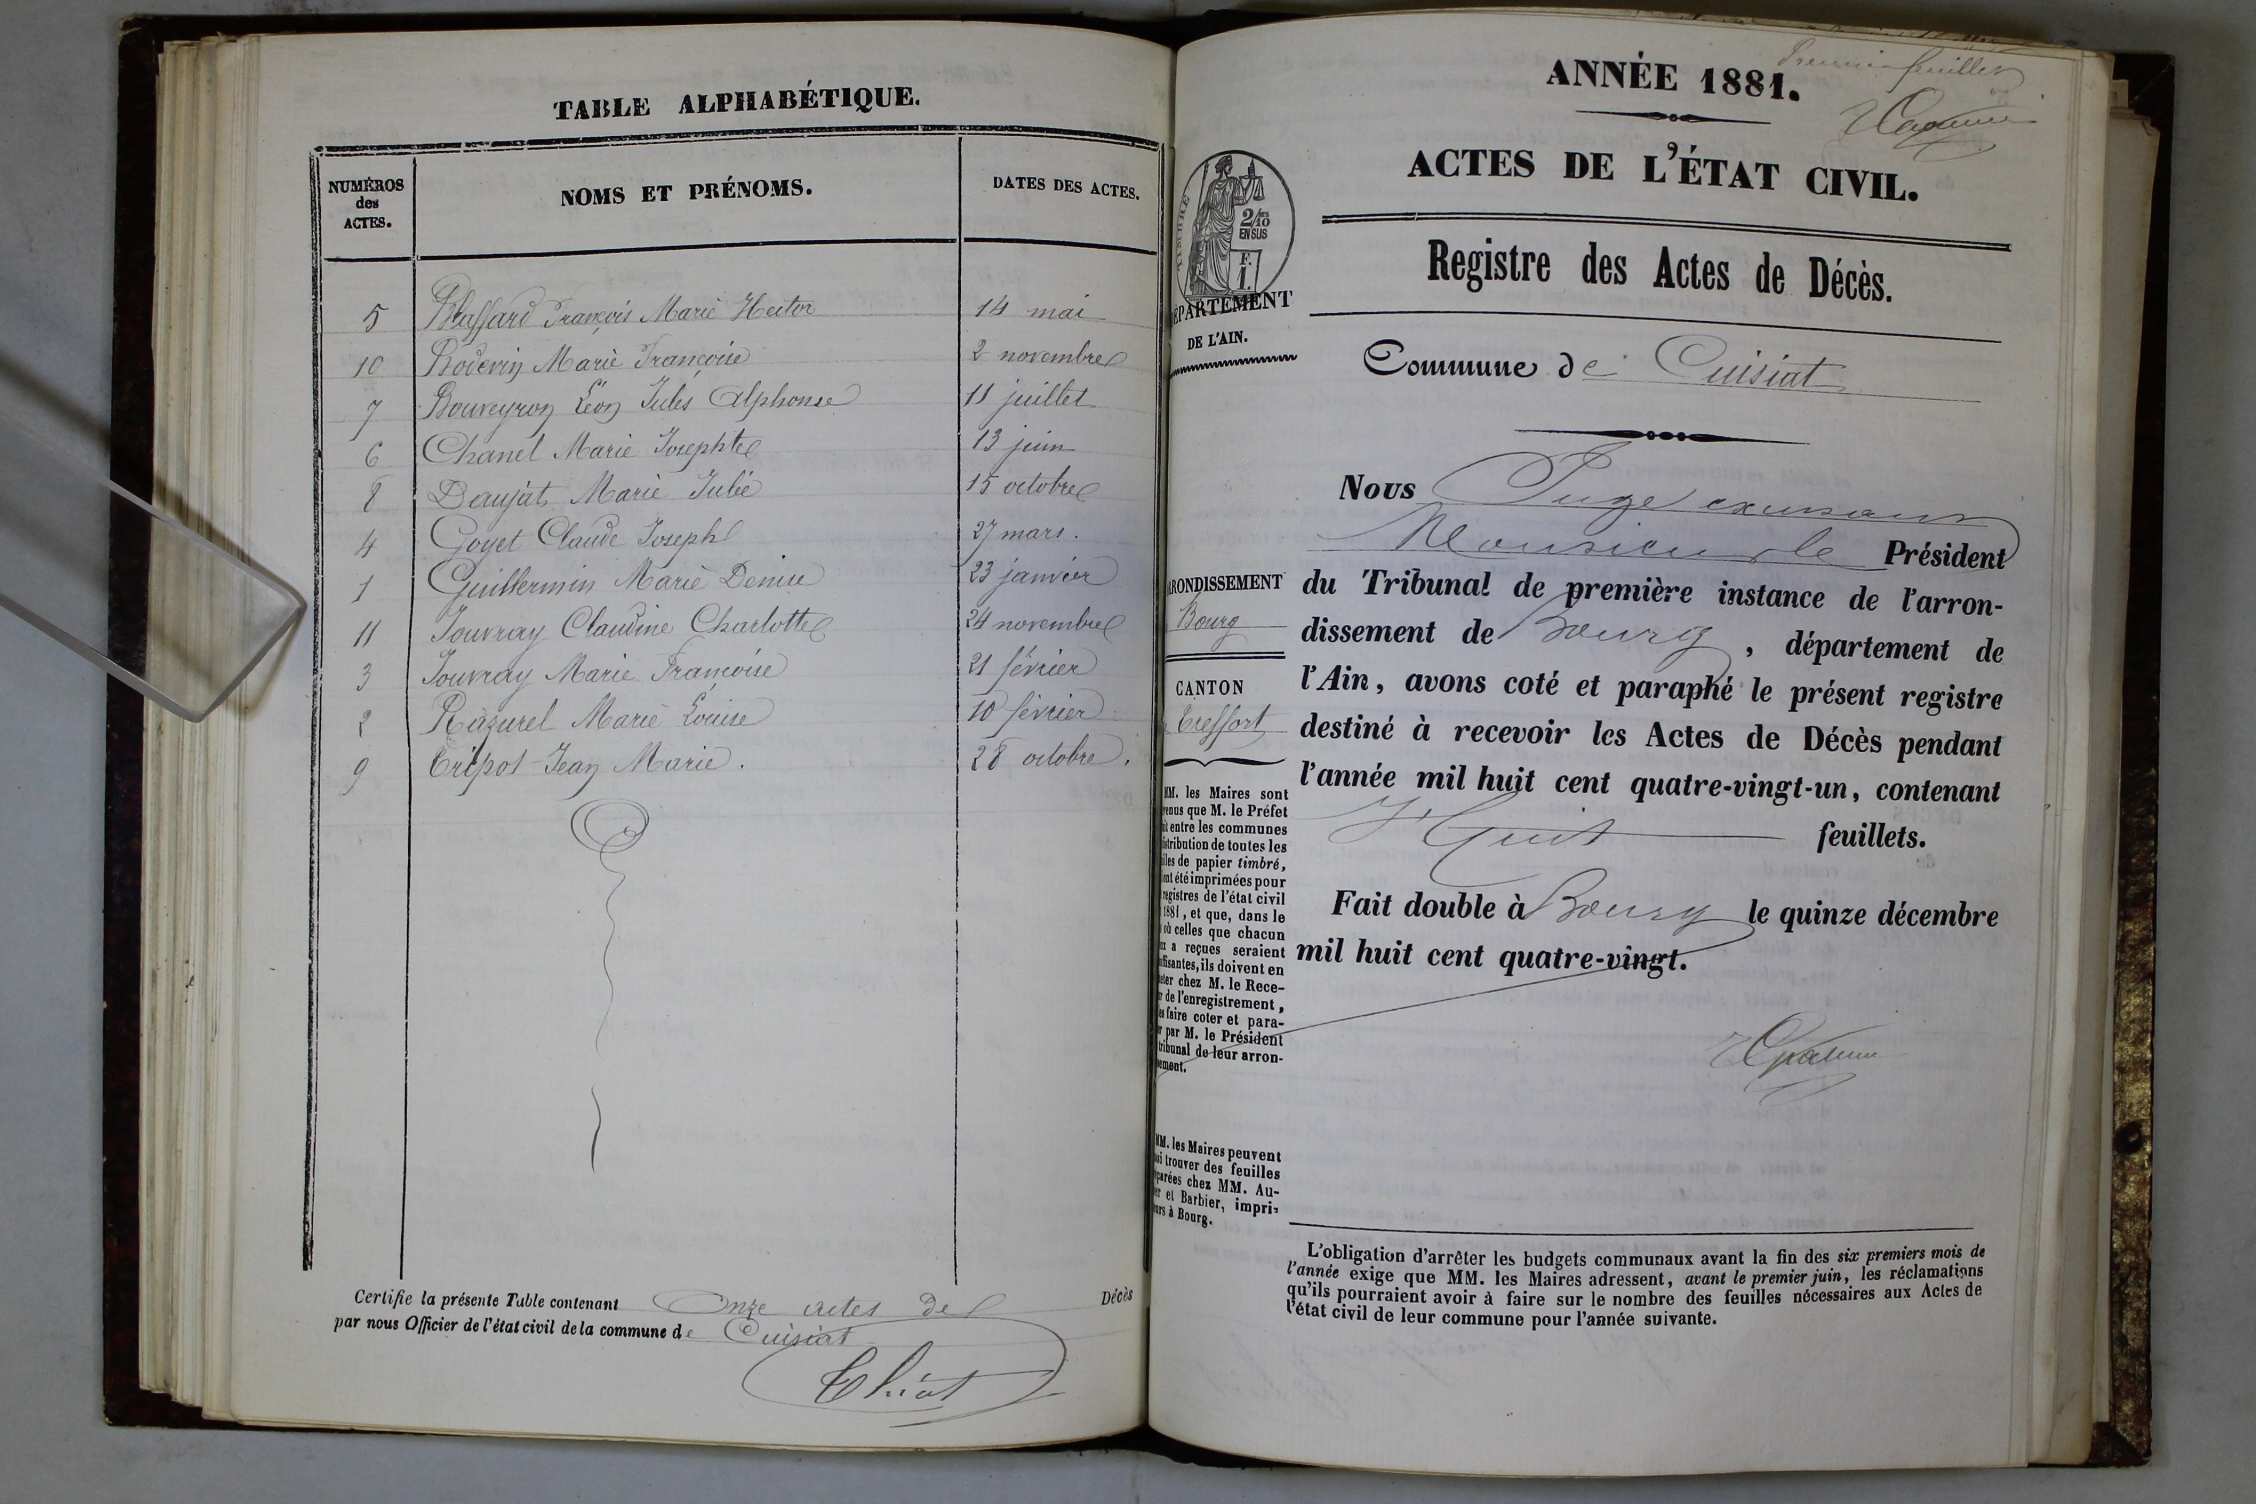 TABLE ALPHABÉTIQUE.
NUMÉROS des ACTES. NOMS ET PRÉNOMS. DATES DES ACTES.
5 Blassard François Marie Hector 14 mai
10 Bodevin Marie Françoise 2 novembre
7 Bouveyron Léon Jules Alphonse 11 juillet
6 Chanel Marie Josephte 13 juin
8 Daujat Marie Julie 15 octobre
4 Goyet Claude Joseph 27 mars.
1 Guillermin Marie Denise 23 janvier
11 Jouvray Claudine Charlotte 24 novembre
3 Jouvray Marie Françoise 21 février
2 Razurel Marie Louise 10 février
9 Tripot Jean Marie. 28 octobre.
Certifie la présente Table contenant Onze actes de Décès
par nous Officier de l'état civil de la commune de Cuisiat
Thiat
Premier feuillet
ANNÉE 1881.
ACTES DE L'ÉTAT CIVIL.
TIMBRE
2/10 EN SUS
F. 1.
DÉPARTEMENT
DE L'AIN.
Registre des Actes de Décès.
Commune de Cuisiat
Nous Juge
Monsieur le Président
du Tribunal de première instance de l'arron-
dissement de Bourg, département de
l'Ain, avons coté et paraphé le présent registre
destiné à recevoir les Actes de Décès pendant
l'année mil huit cent quatre-vingt-un, contenant
Huit feuillets.
Fait double à Bourg le quinze décembre
mil huit cent quatre-vingt.
RONDISSEMENT
Bourg
CANTON
Treffort
MM. les Maires sont
venus que M. le Préfet
it entre les communes
istribution de toutes les
illes de papier timbré,
ont été imprimées pour
registres de l'état civil
1881, et que, dans le
où celles que chacun
ux a reçues seraient
ffisantes, ils doivent en
eter chez M. le Rece-
r de l'enregistrement,
es faire coter et para-
r par M. le Président
tribunal de leur arron-
sement.
MM. les Maires peuvent
ssi trouver des feuilles
parées chez MM. Au-
er et Barbier, impri-
eurs à Bourg.
L'obligation d'arrêter les budgets communaux avant la fin des six premiers mois de
l'année exige que MM. les Maires adressent, avant le premier juin, les réclamations
qu'ils pourraient avoir à faire sur le nombre des feuilles nécessaires aux Actes de
l'état civil de leur commune pour l'année suivante.